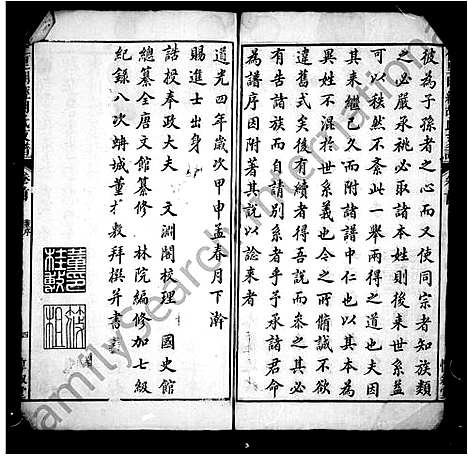 彼為子孫者之心而又使同宗者知族類
之必嚴承祧必取諸本姓則後來世系益
可以秩然不紊此一舉兩得之道也夫因
其來繼已久而附諸譜中仁也以其本為
異姓不混於世系義也今之所脩誠不欲
違舊式矣後有續者得吾說而參之其必
有告諸族而自請別系者乎予承諸君命
為譜序因附著其說以諗來者
道光四年歲次甲申孟春月下澣
賜進士出身
誥授奉政大夫 文淵閣校理 國史館
總纂全唐文館纂修 林院編修加七級
紀錄八次婣城董才敎拜撰并書
四
familysearch international